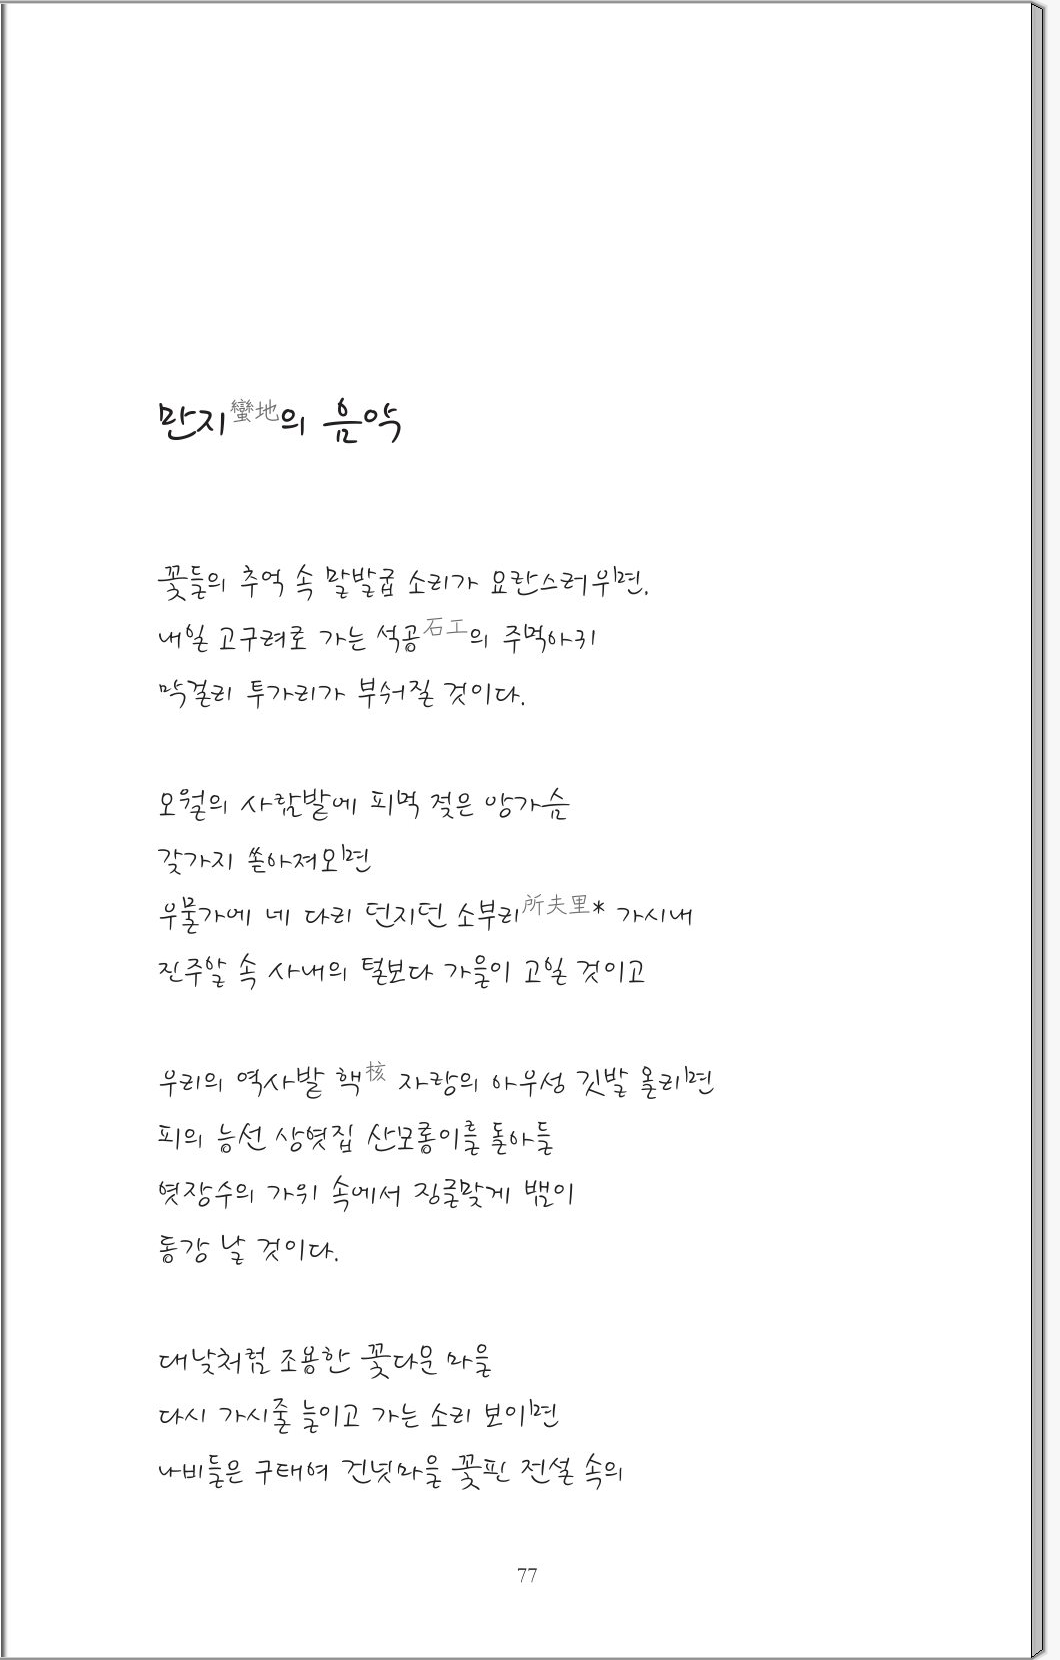 만지蠻地의 음악
꽃들의 추억 속 말발굽 소리가 요란스러우면,
내일 고구려로 가는 석공石工의 주먹아귀
막걸리 투가리가 부숴질 것이다.
오월의 사람밭에 피먹 젖은 앙가슴
갖가지 쏟아져오면
우물가에 네 다리 던지던 소부리所夫里* 가시내
진주알 속 사내의 털보다 가을이 고일 것이고
우리의 역사밭 핵核 자랑의 아우성 깃발 올리면
피의 능선 상엿집 산모롱이를 돌아들
엿장수의 가위 속에서 징글맞게 뱀이
동강 날 것이다.
대낮처럼 조용한 꽃다운 마을
다시 가시줄 늘이고 가는 소리 보이면
나비들은 구태여 건넛마을 꽃핀 전설 속의
77